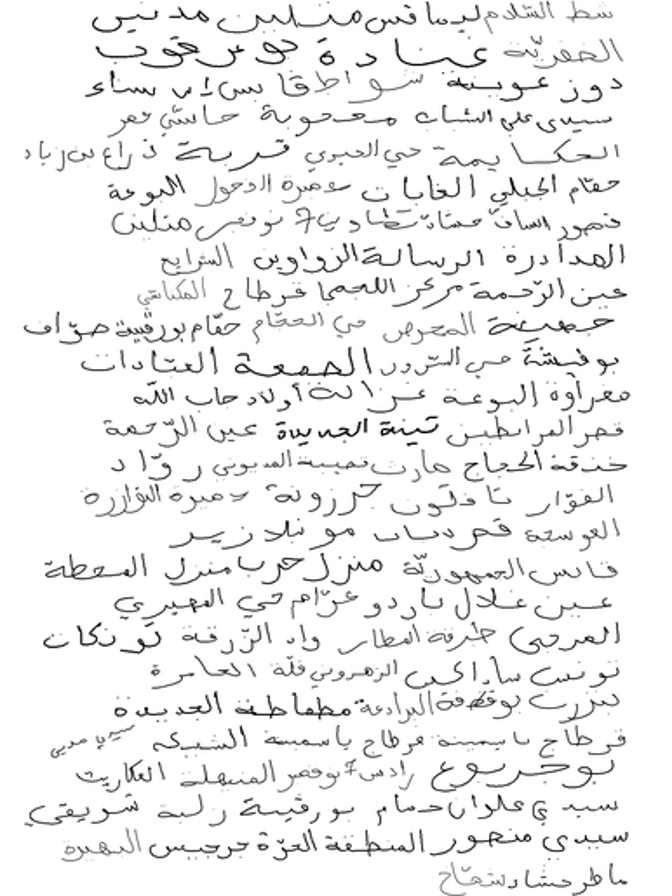 شط السلام ليماقس منزلين مدنين
الخفريّة عبادة بوعرقوب
دوز عوينة شواط قابس
سيدي علي الشباب معجوبة حاسي عمر
الحكايمة حي الحبوبي قربة ذراع بن زياد
حمّام الجبلي الغابات الدخول البوعة
قصور الساف حشاد 7 نوفمبر منزلين
الهدادرة الرسالة الزواوين الشرايع
عين الرّحمة مركز اللجمي قرطاج المكناسي
جهينة المعرض حي الحجّام حمّام بورقيبة صوّاف
بوفيشة حي السّرور الجمعة العبّادات
مغراوة البوعة غزالة أولاد جاب اللّه
قصر المرابطين تينة الجديدة عين الرّحمة
خندقة الحجاج مارث قصيبة المديوني روّاد
الفوّار تاكلون جرزونة
العوسجة قصر مونبلازير
فارس الجمهوريّة منزل حرب منزل المحطة
عين غلال باردو عزّام حي المهيري
العرجي طرفة العطار واد الزّرقة
تونس الزهروني قلّة العامرة
بنزرت بوقطفة البرادعة مطماطة الجديدة
قرطاج ياسمينة قرطاج ياسمينة الشبيكة سيدي مديني
بوجربوع رادس 7 نوفمبر المنيهلة العكاريت
سيدي علوان حمام بورقيبة زلبة شريقي
سيدي منصور المنطقة الحرّة جرجيس البحيرة
ماطر حشاد شمّاخ